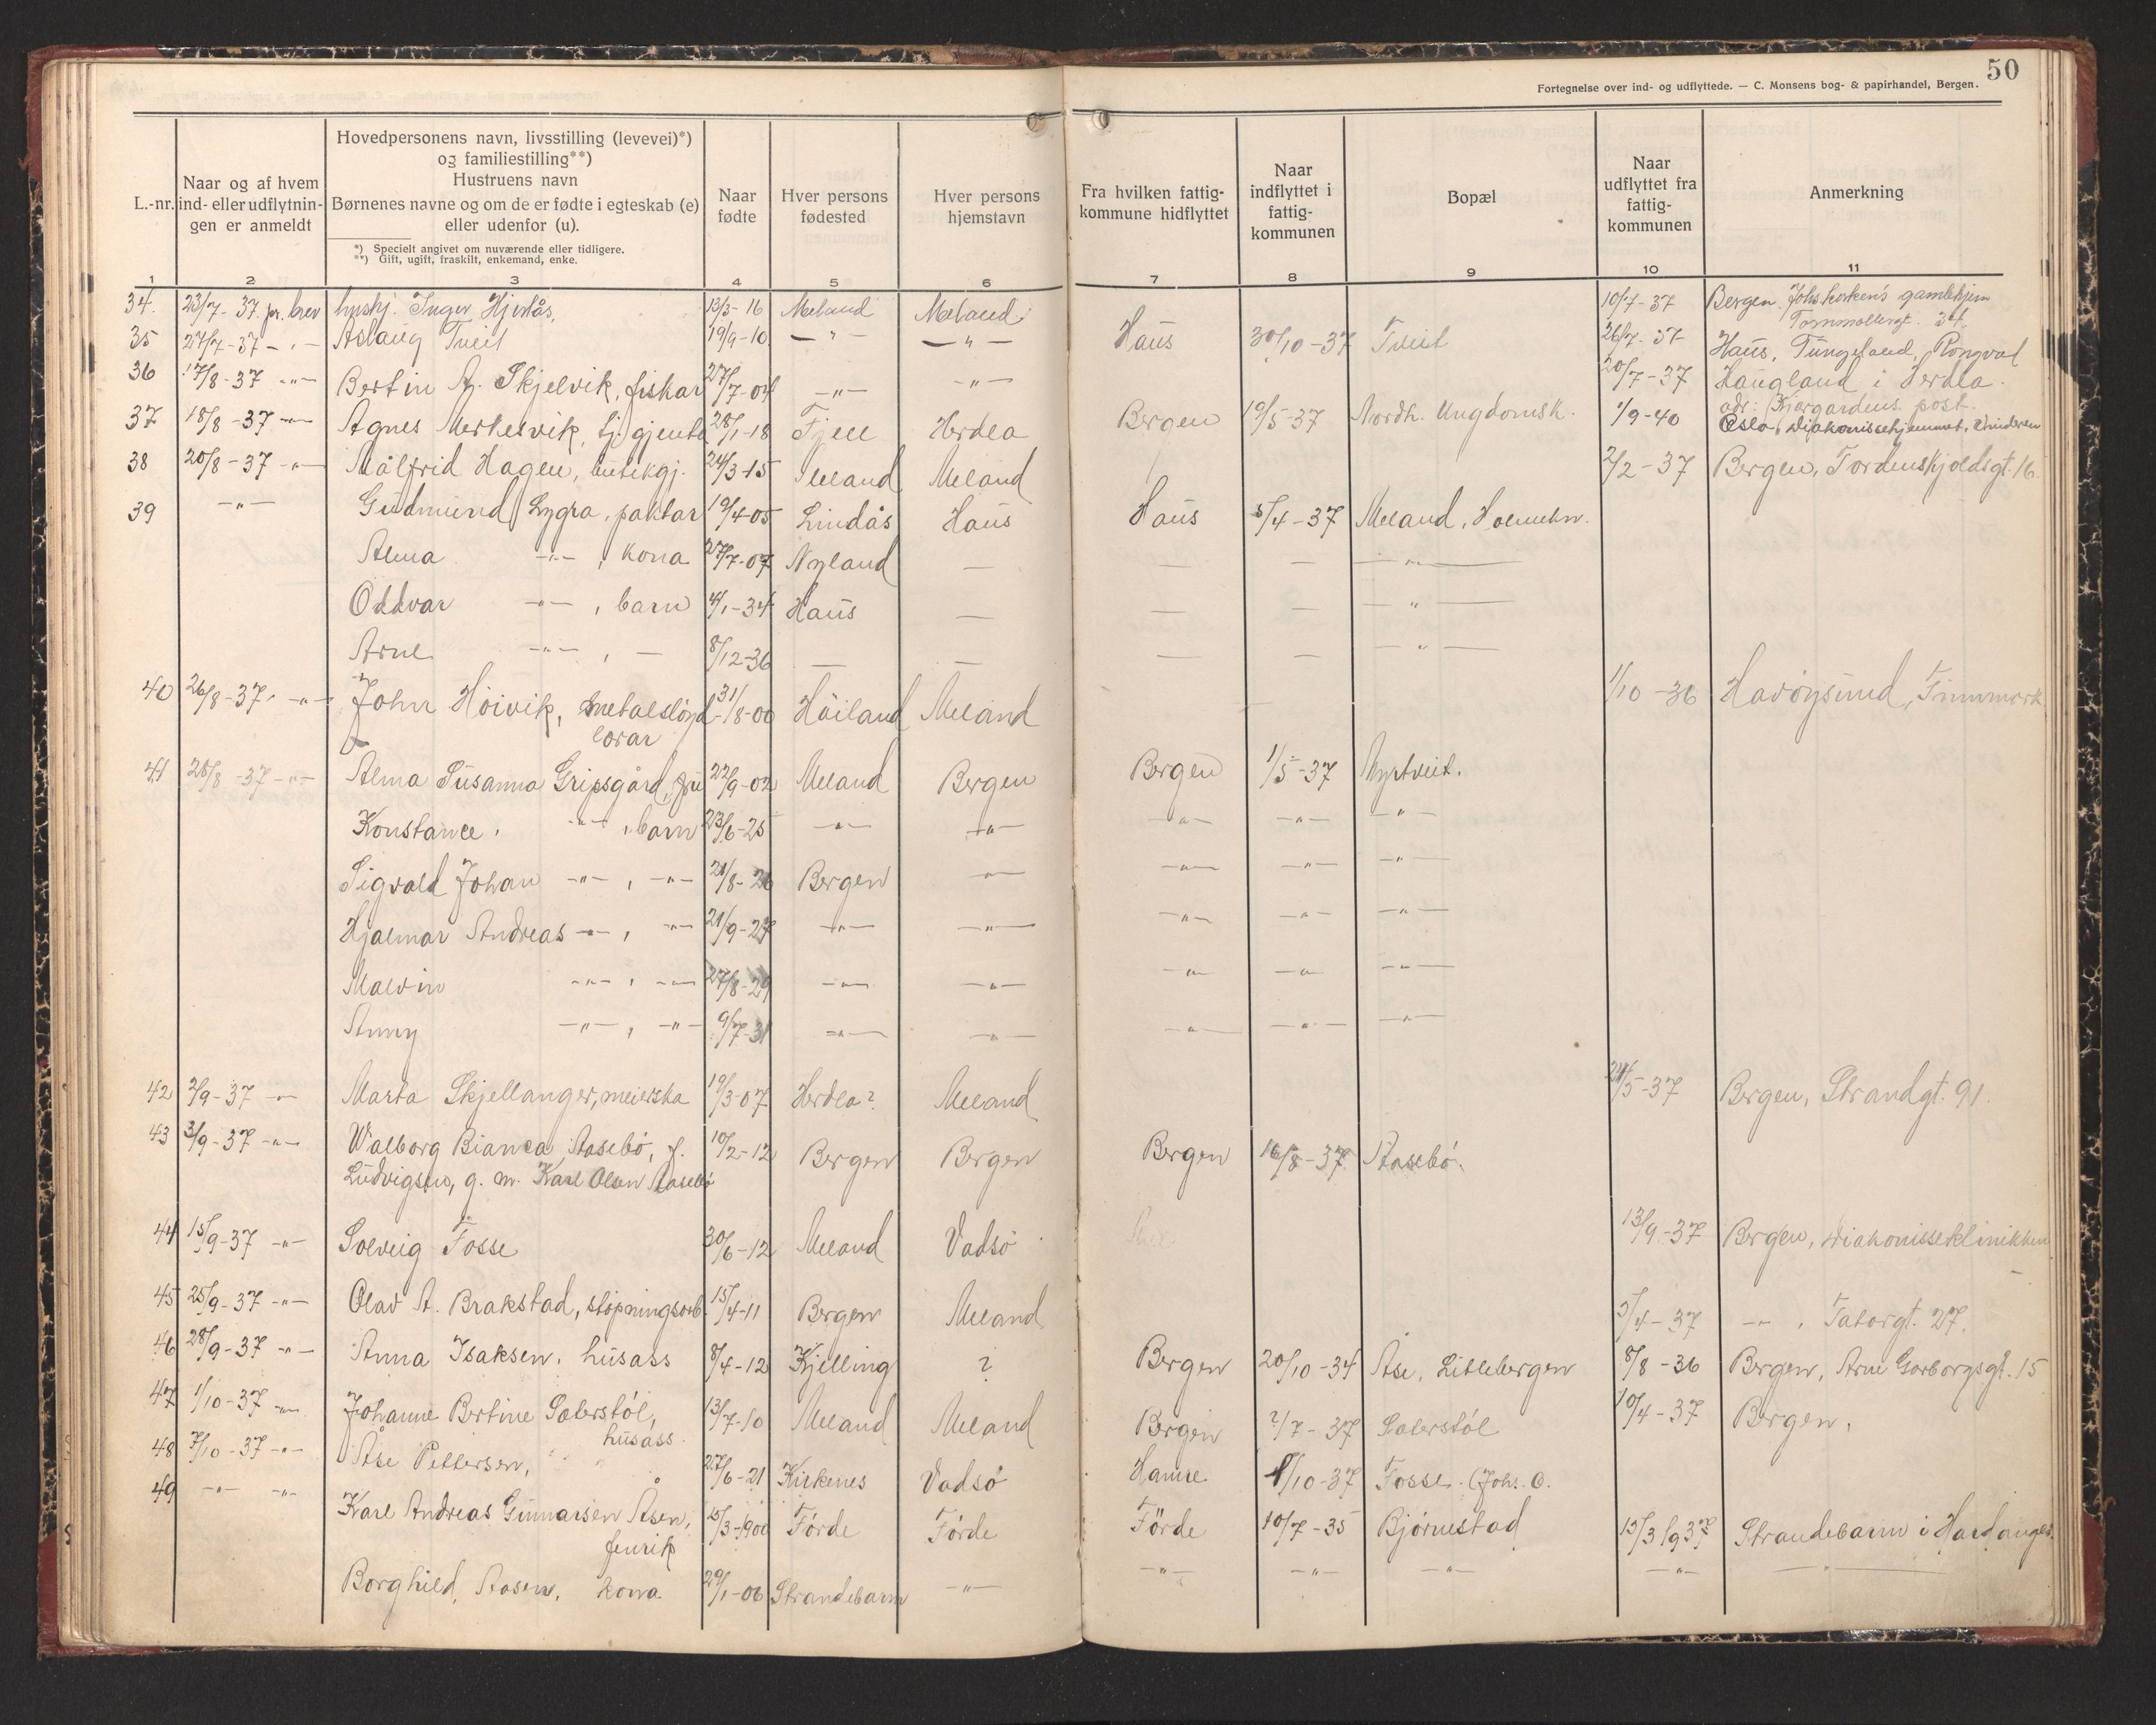 50
Fortegnelse over ind- og udflyttede. — C. Monsens bog- & papirhandel, Bergen.
L.-nr.
Naar og af hvem ind- eller udflytningen er anmeldt
Hovedpersonens navn, livsstilling (levevei)*)
og familiestilling**)
Hustruens navn
Børnenes navne og om de er fødte i egteskab (e)
eller udenfor (u).
*) Specielt angivet om nuværende eller tidligere.
**) Gift, ugift, fraskilt, enkemand, enke.
Naar fødte
Hver persons fødested
Hver persons hjemstavn
Fra hvilken fattigkommune hidflyttet
Naar indflyttet i fattigkommunen
Bopæl
Naar udflyttet fra fattigkommunen
Anmerkning
1 2 3 4 5 6 7 8 9 10 11
34. 23/7-37. pr. brev hushj. Inger Hjertås, 13/3-16 Meland Meland 10/7-37 Bergen. gamlehjem
35 27/7-37 - " - Aslaug Tveit 19/9-10 - " - - " - Haus 30/10-37 Tveit 26/7-37 Haus, Tungeland,
36 17/8-37 - " - Bertin A. Skjelvik, fiskar 27/7-04 - " - - " - 20/7-37 Haugland i Herdla.
adr: Kjørgardens post.
37 18/8-37 - " - Agnes Merkesvik, tj. gjenta 28/1-18 Fjell Herdla Bergen 19/5-37 Nordh. Ungdomsk. 1/9-40 Oslo, Diakonissehjemmet, Vinderen
38 20/8-37 - " - Målfrid Hagen, butikgj. 24/3-15 Meland Meland 2/2-37 Bergen, Tordenskjoldsgt. 16
39 - " - Gudmund Lygra, paktar 19/4-05 Lindås Haus Haus 5/4-37 Meland,
Alma - " -, kona 27/7-07 Nyland — — — - " -
Oddvar - " -, barn 4/1-34 Haus — — — - " -
Arne - " -, — 8/12-36 — — — — - " -
40 26/8-37. - " - John Høivik, metalsløyd-
lærar 31/8-00 Høiland Meland 1/10-36 Havøysund, Finnmark
41 28/8-37 - " - Alma Susanna Gripsgård, fru 22/9-02 Meland Bergen Bergen 1/5-37 Myrtveit.
Konstance, - " -, barn 23/6-25 - " - - " - - " - - " - - " -
Sigvald Johan - " -, - " - 21/8-26 Bergen - " - - " - - " - - " -
Hjalmar Andreas - " -, - " - 21/9-27 - " - - " - - " - - " - - " -
Malvin - " -, - " - 27/8-29 - " - - " - - " - - " - - " -
Anny - " -, - " - 9/7-31 - " - - " - - " - - " - - " -
42 2/9-37 - " - Marta Skjellanger, meierska 19/3-07 Herdla? Meland 24/5-37 Bergen, Strandgt. 91.
43 3/9-37 - " - Walborg Bianca Aasebø, f. 10/2-12 Bergen Bergen Bergen 16/8-37 Aasebø.
Ludvigsen, g. m. Karl Olsen Aasebø
44 15/9-37 - " - Solveig Fosse 30/6-12 Meland Vadsø 13/9-37 Bergen, Diakonisseklinikken
45 25/9-37 - " - Olav A. Brakstad, støpningsarb. 15/4-11 Bergen Meland 5/4-37 - " -, Tatorgt. 27.
46 28/9-37 - " - Anna Isaksen, husass 8/4-12 Kjelling ? Bergen 20/10-34 Åse, Litlebergen 8/8-36 Bergen, Arne Garborgsgt. 15
47 1/10-37 - " - Johanne Bertine Sæterstøl,
husass. 13/7-10 Meland Meland Bergen ?/7-37 Sæterstøl 10/4-37 Bergen,
48 7/10-37 - " - Åse Pettersen, 27/6-21 Kirkenes Vadsø Hamre 1/10-37 Fosse. (Johs. O.
49 - " - - " - Karl Andreas Gunnarsen Åsen,
fenrik 15/3-1900 Førde Førde Førde 10/7-35 Bjørnestad 15/3 1937 Strandebarm i Hardanger.
Borghild Aasen, kona 29/1-06 Strandebarm - " - - " - - " - - " - - " - - " -